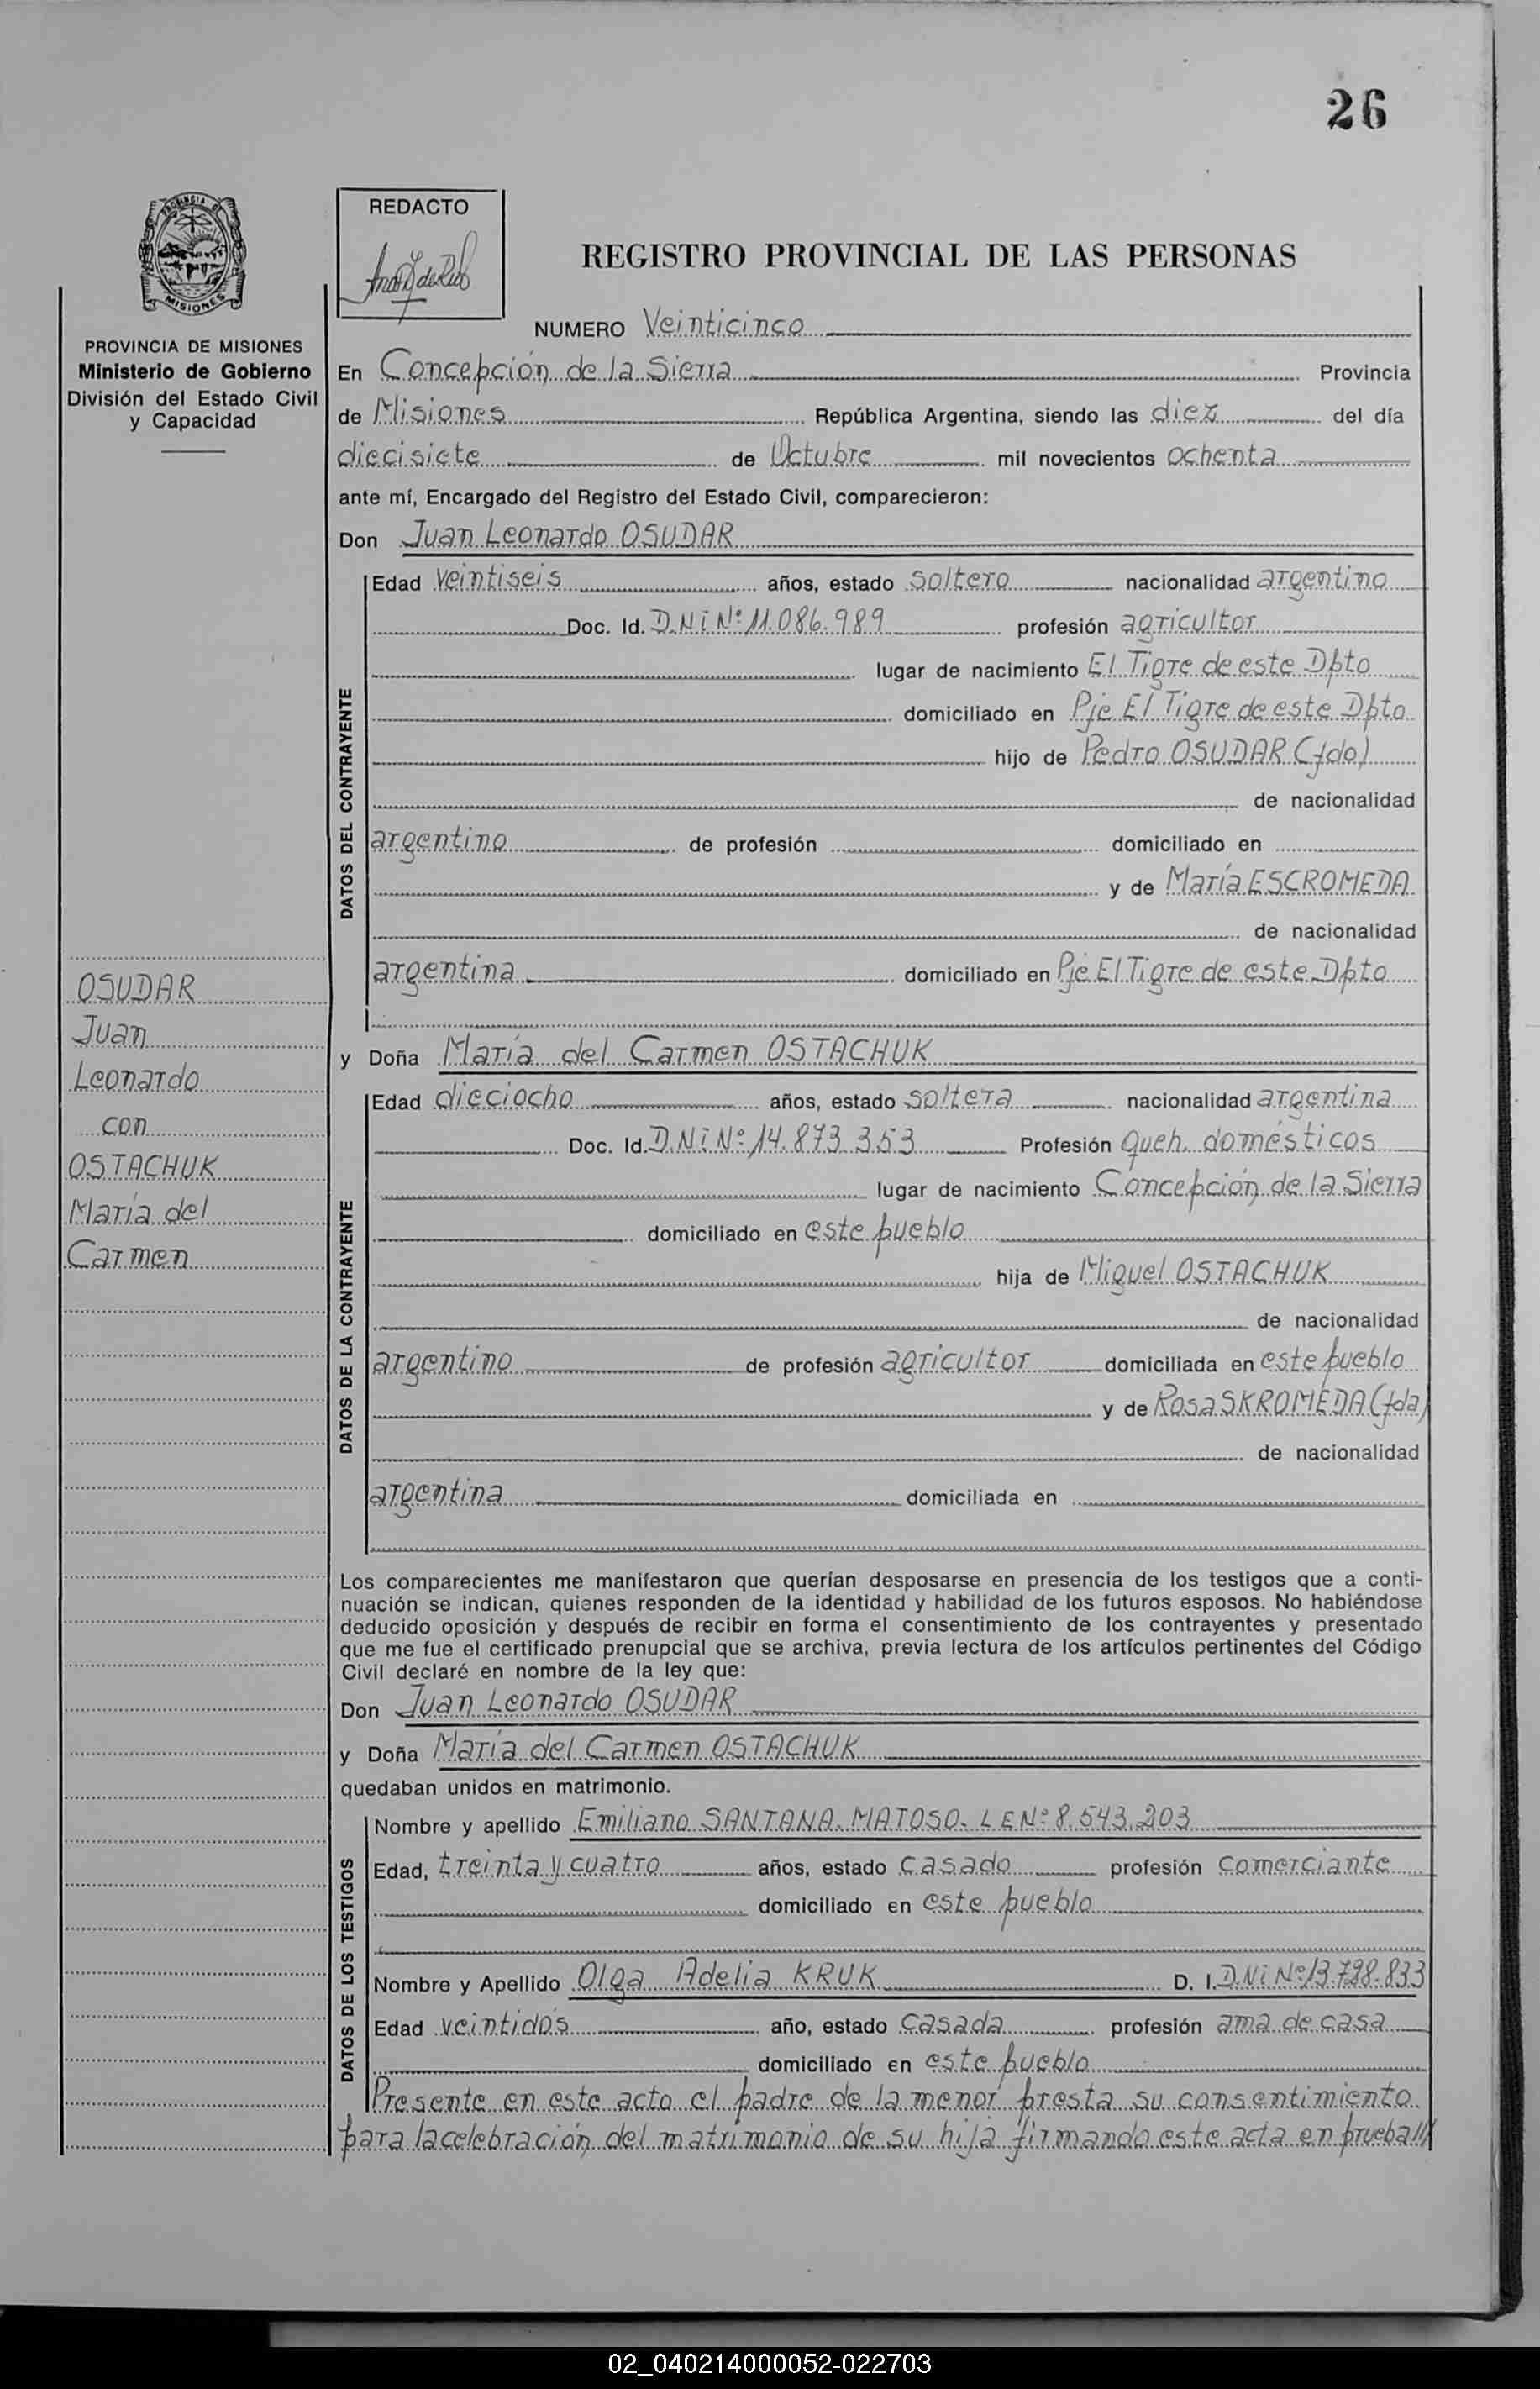 26
REDACTO
REGISTRO PROVINCIAL DE LAS PERSONAS
PROVINCIA DE MISIONES
Ministerio de Gobierno
División del Estado Civil
y Capacidad
NUMERO Veinticinco
En Concepción de la Sierra Provincia
de Misiones República Argentina, siendo las diez del día
diecisiete de Octubre mil novecientos ochenta
ante mí, Encargado del Registro del Estado Civil, comparecieron:
Don Juan Leonardo OSUDAR
DATOS DEL CONTRAYENTE
Edad veintiseis años, estado soltero nacionalidad argentino
Doc. Id. D.N.i Nº 11.086.989 profesión agricultor
lugar de nacimiento El Tigre de este Dpto
domiciliado en Pje El Tigre de este Dpto
hijo de Pedro OSUDAR (fdo)
de nacionalidad
argentino de profesión domiciliado en
y de María ESCROMEDA
de nacionalidad
argentina domiciliado en Pje El Tigre de este Dpto
OSUDAR
Juan
Leonardo
con
OSTACHUK
María del
Carmen
y Doña María del Carmen OSTACHUK
DATOS DE LA CONTRAYENTE
Edad dieciocho años, estado soltera nacionalidad argentina
Doc. Id. D.N.i Nº 14.873.353 Profesión queh. domésticos
lugar de nacimiento Concepción de la Sierra
domiciliado en este pueblo
hija de Miguel OSTACHUK
de nacionalidad
argentino de profesión agricultor domiciliada en este pueblo
y de Rosa SKROMEDA (fda)
de nacionalidad
argentina domiciliada en
Los comparecientes me manifestaron que querían desposarse en presencia de los testigos que a conti-
nuación se indican, quienes responden de la identidad y habilidad de los futuros esposos. No habiéndose
deducido oposición y después de recibir en forma el consentimiento de los contrayentes y presentado
que me fue el certificado prenupcial que se archiva, previa lectura de los artículos pertinentes del Código
Civil declaré en nombre de la ley que:
Don Juan Leonardo OSUDAR
y Doña María del Carmen OSTACHUK
quedaban unidos en matrimonio.
DATOS DE LOS TESTIGOS
Nombre y apellido Emiliano SANTANA MATOSO. L E Nº 8.543.203
Edad, treinta y cuatro años, estado casado profesión comerciante
domiciliado en este pueblo
Nombre y Apellido Olga Adelia KRUK D. I. D.Ni Nº 13.798.833
Edad veintidós año, estado casada profesión ama de casa
domiciliado en este pueblo
Presente en este acto el padre de la menor presta su consentimiento
para la celebración del matrimonio de su hija firmando este acta en prueba///
02_040214000052-022703